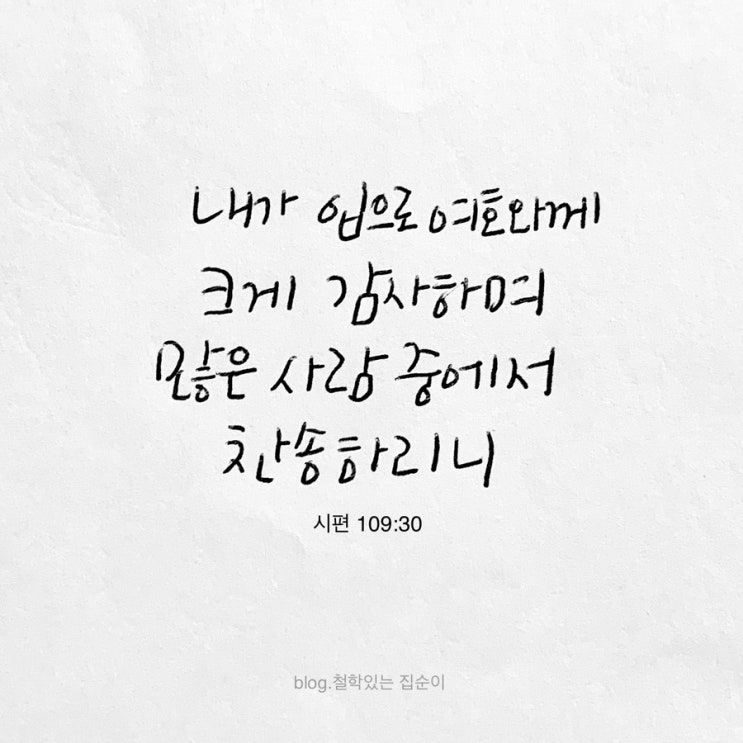 내가 입으로 여호와께
크게 감사하며
많은 사람 중에서
찬송하리니
시편 109:30
blog.철학있는 집순이